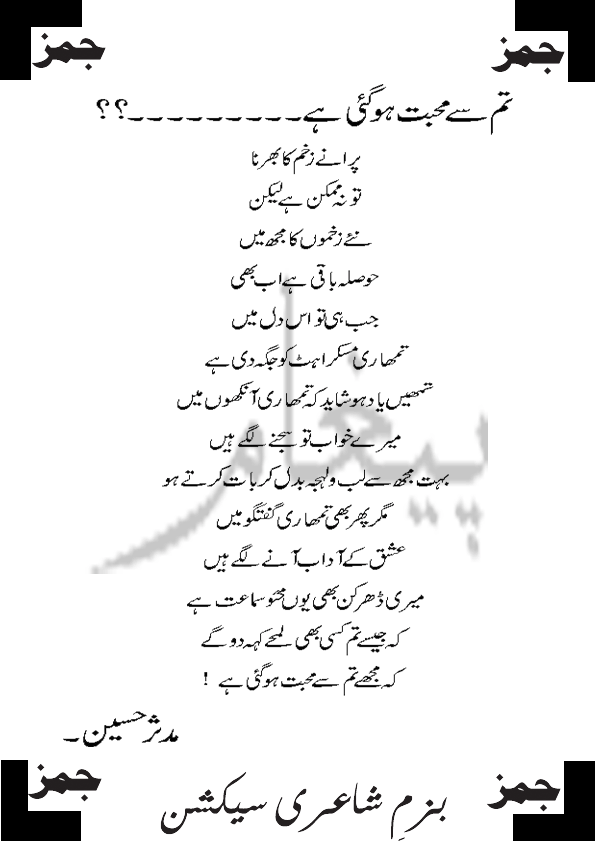 جمز
جمز
تم سے محبت ہوگئی ہے۔۔۔۔۔۔۔۔۔؟؟
پرانے زخم کا بھرنا
تو نہ ممکن ہے لیکن
نئے زخموں کا مجھ میں
حوصلہ باقی ہے اب بھی
جب ہی تو اس دل میں
تمھاری مسکراہٹ کو جگہ دی ہے
تمھیں یاد ہو شاید کہ تمھاری آنکھوں میں
میرے خواب تو سجنے لگے ہیں
بہت مجھ سے لب و لہجہ بدل کر بات کرتے ہو
مگر پھر بھی تمھاری گفتگو میں
عشق کے آداب آنے لگے ہیں
میری دھڑکن بھی یوں محو سماعت ہے
کہ جیسے تم کسی بھی لمحے کہہ دو گے
کہ مجھے تم سے محبت ہوگئی ہے !
مدثر حسین ۔
جمز
جمز
بزمِ شاعری سیکشن
پیغام